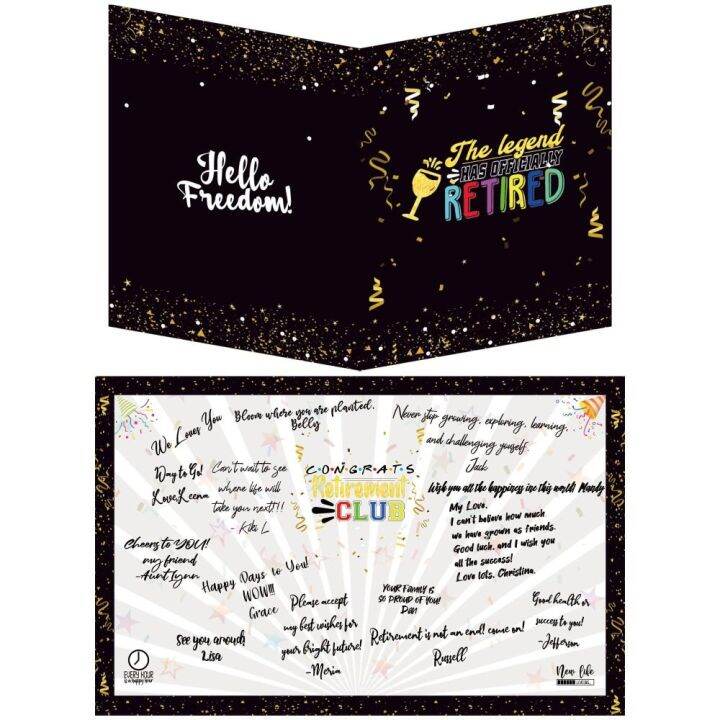 Hello
Freedom!
The legend
HAS OFFICIALLY
RETIRED
We Loves You
Bloom where you are planted.
Belly
Never stop growing, exploring, learning,
and challenging youself.
Jack
Day to Go!
Love, Leena
Can't wait to see
where life will
take you next!!
- Kiki L
CONGRATS
Retirement
CLUB
Wish you all the happiness inc this world! Mandy
My Love,
I can't believe how much
we have grown as friends.
Good luck, and I wish you
all the success!
Love lots, Christina.
Cheers to YOU!
my friend
-Aunt Lynn
Happy Days to You!
WOW!!!
Grace
Please accept
my best wishes for
your bright future!
-Meria
YOUR FAMILY IS
SO PROUD OF YOU!
Dan
Good health or
success to you!
-Jefferson
See you aroud!
Lisa
Retirement is not an end! come on!
Russell
EVERY HOUR
is a happy hour
New life
LOADING...